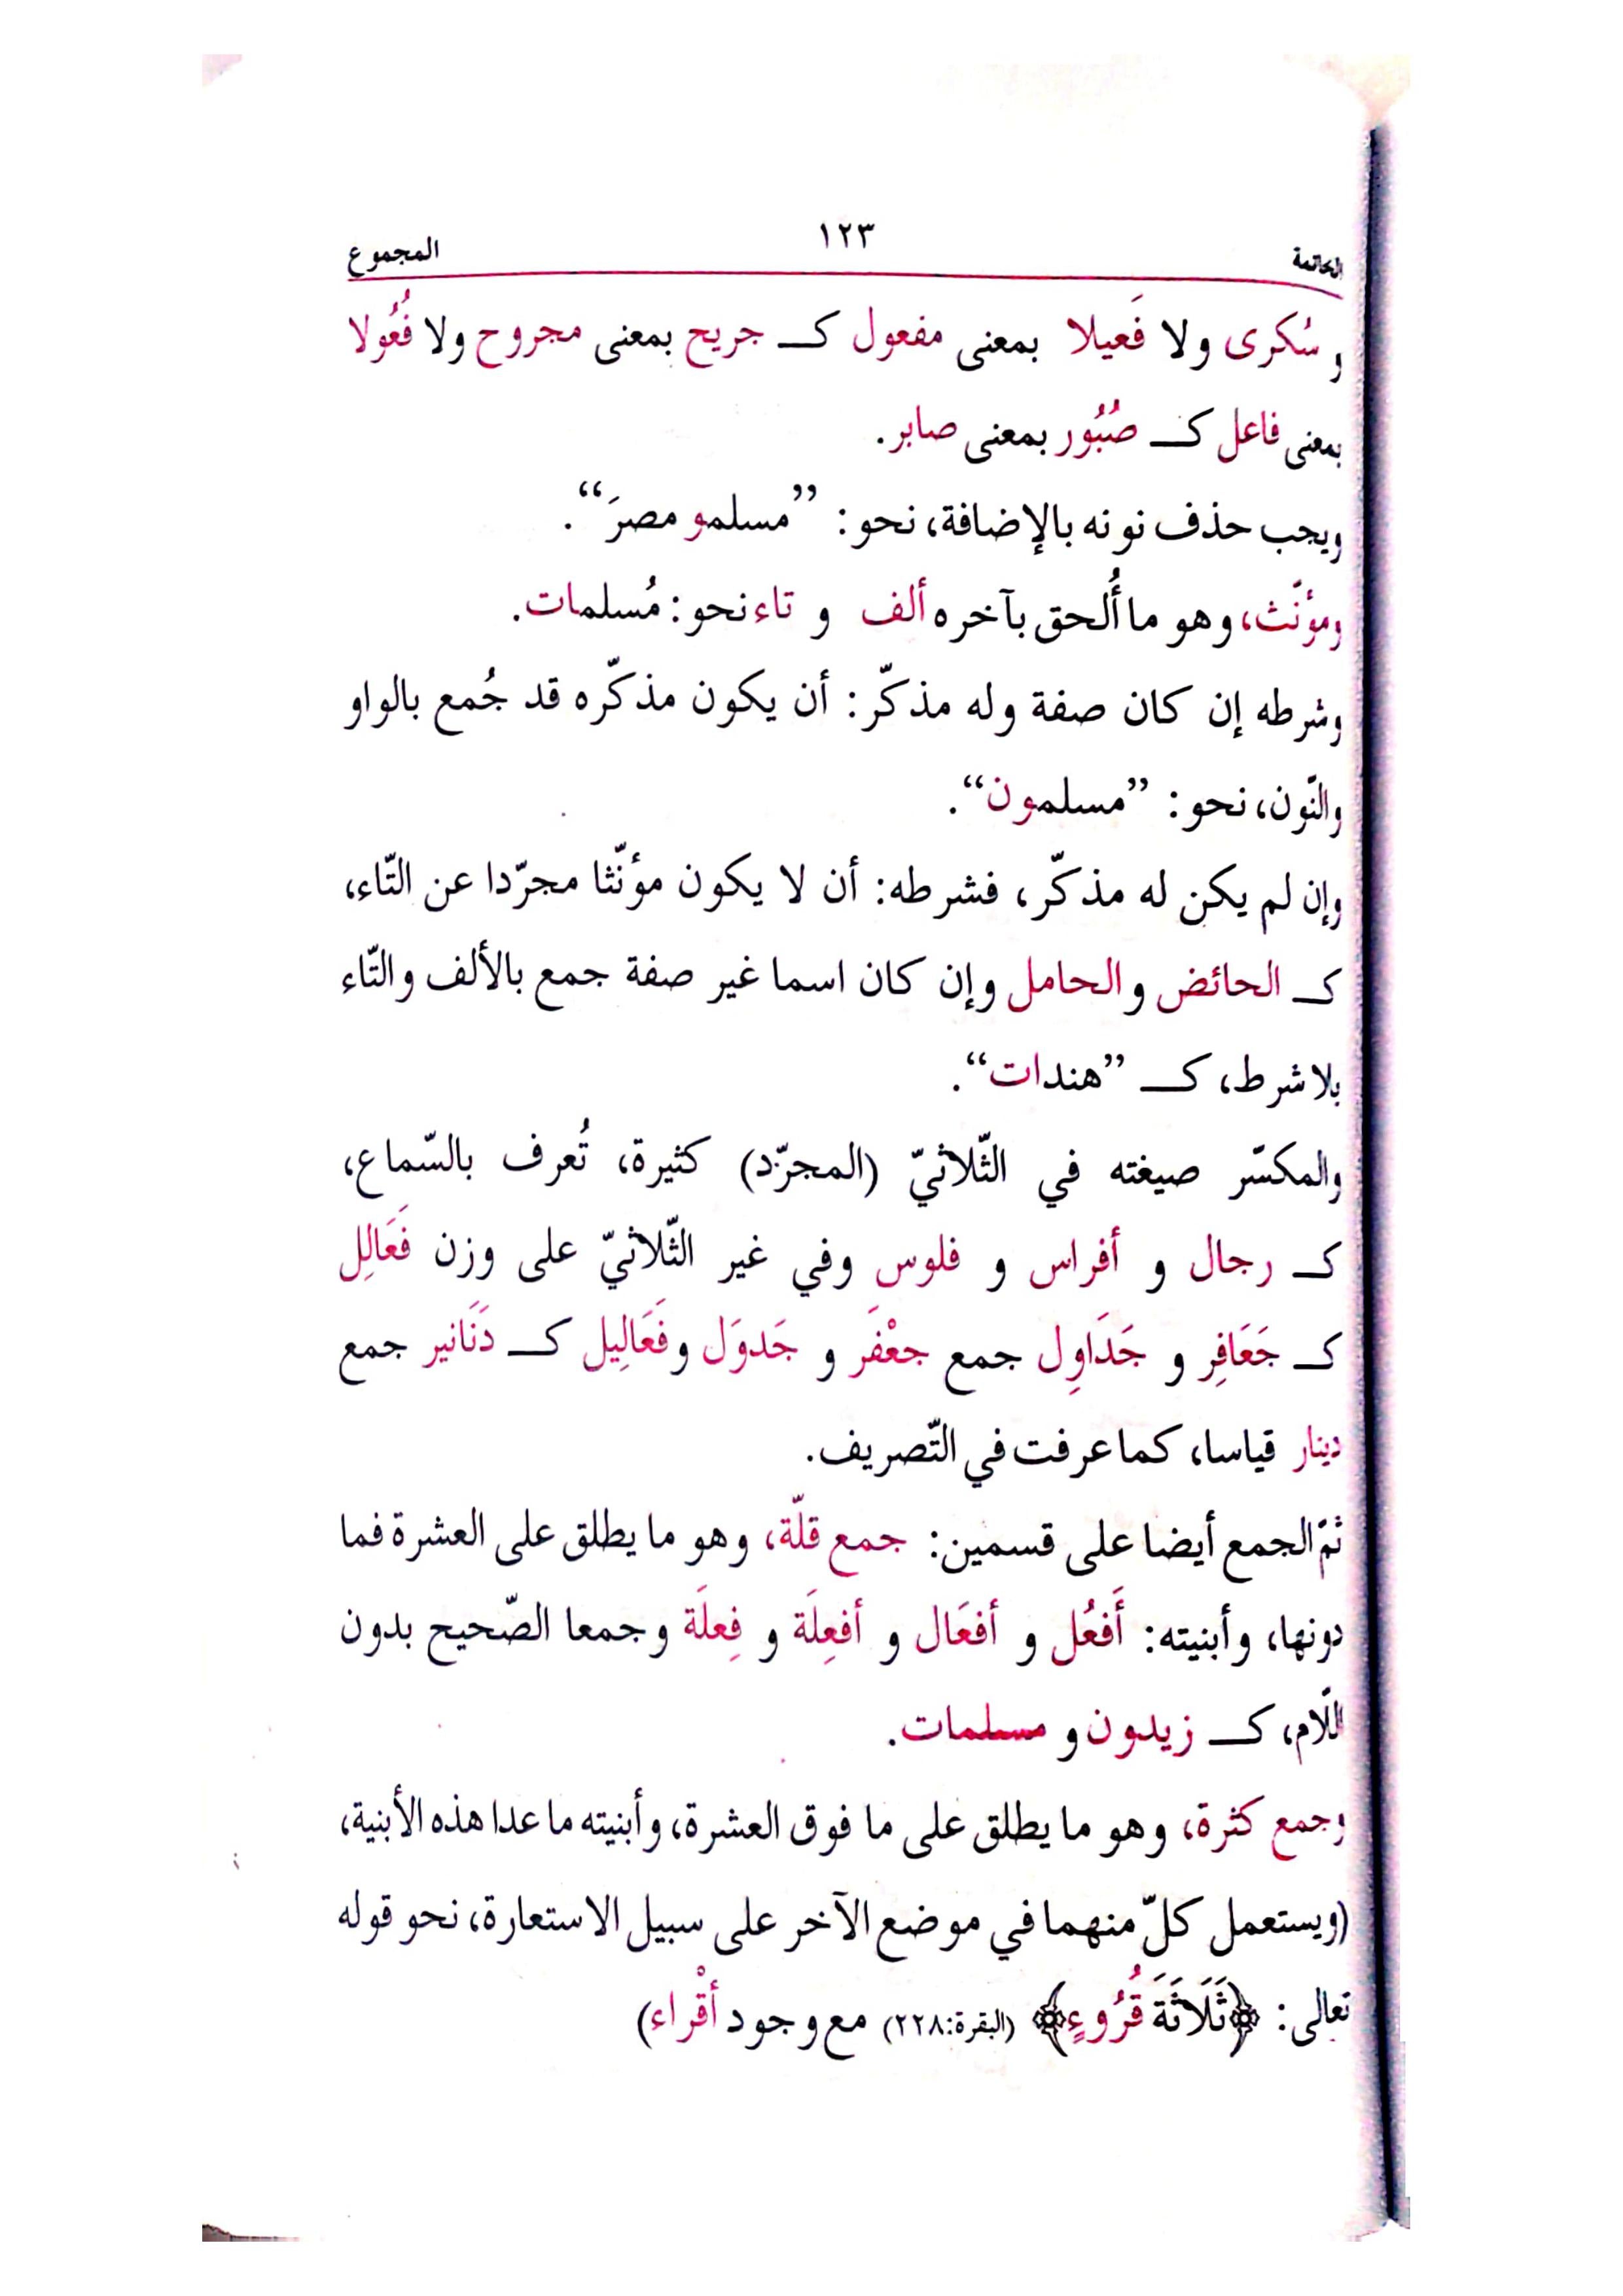 الخاتمة ١٢٣ المجموع
و سُكرى ولا فَعيلا بمعنى مفعول كـ جريح بمعنى مجروح ولا فُعُولا
بمعنى فاعل كـ صُبُور بمعنى صابر.
ويجب حذف نونه بالإضافة، نحو: ”مسلمو مصرَ“.
ومؤنّث، وهو ما أُلحق بآخره ألف و تاء نحو: مُسلمات.
وشرطه إن كان صفة وله مذكّر: أن يكون مذكّره قد جُمع بالواو
والنّون، نحو: ”مسلمون“.
وإن لم يكن له مذكّر، فشرطه: أن لا يكون مؤنّثا مجرّدا عن التّاء،
كـ الحائض والحامل وإن كان اسما غير صفة جمع بالألف والتّاء
بلا شرط، كـ ”هندات“.
والمكسّر صيغته في الثّلاثيّ (المجرّد) كثيرة، تُعرف بالسّماع،
كـ رجال و أفراس و فلوس وفي غير الثّلاثيّ على وزن فَعَالِل
كـ جَعَافِر و جَدَاوِل جمع جعْفَر و جَدوَل وفَعَالِيل كـ دَنَانير جمع
دينار قياسا، كما عرفت في التّصريف.
ثمّ الجمع أيضا على قسمين: جمع قلّة، وهو ما يطلق على العشرة فما
دونها، وأبنيته: أَفعُل و أفعَال و أفعِلَة و فِعلَة وجمعا الصّحيح بدون
اللّام، كـ زيدون و مسلمات.
وجمع كثرة، وهو ما يطلق على ما فوق العشرة، وأبنيته ما عدا هذه الأبنية،
(ويستعمل كلّ منهما في موضع الآخر على سبيل الاستعارة، نحو قوله
تعالى: ﴿ثَلَاثَةَ قُرُوءٍ﴾ (البقرة:٢٢٨) مع وجود أقْراء)